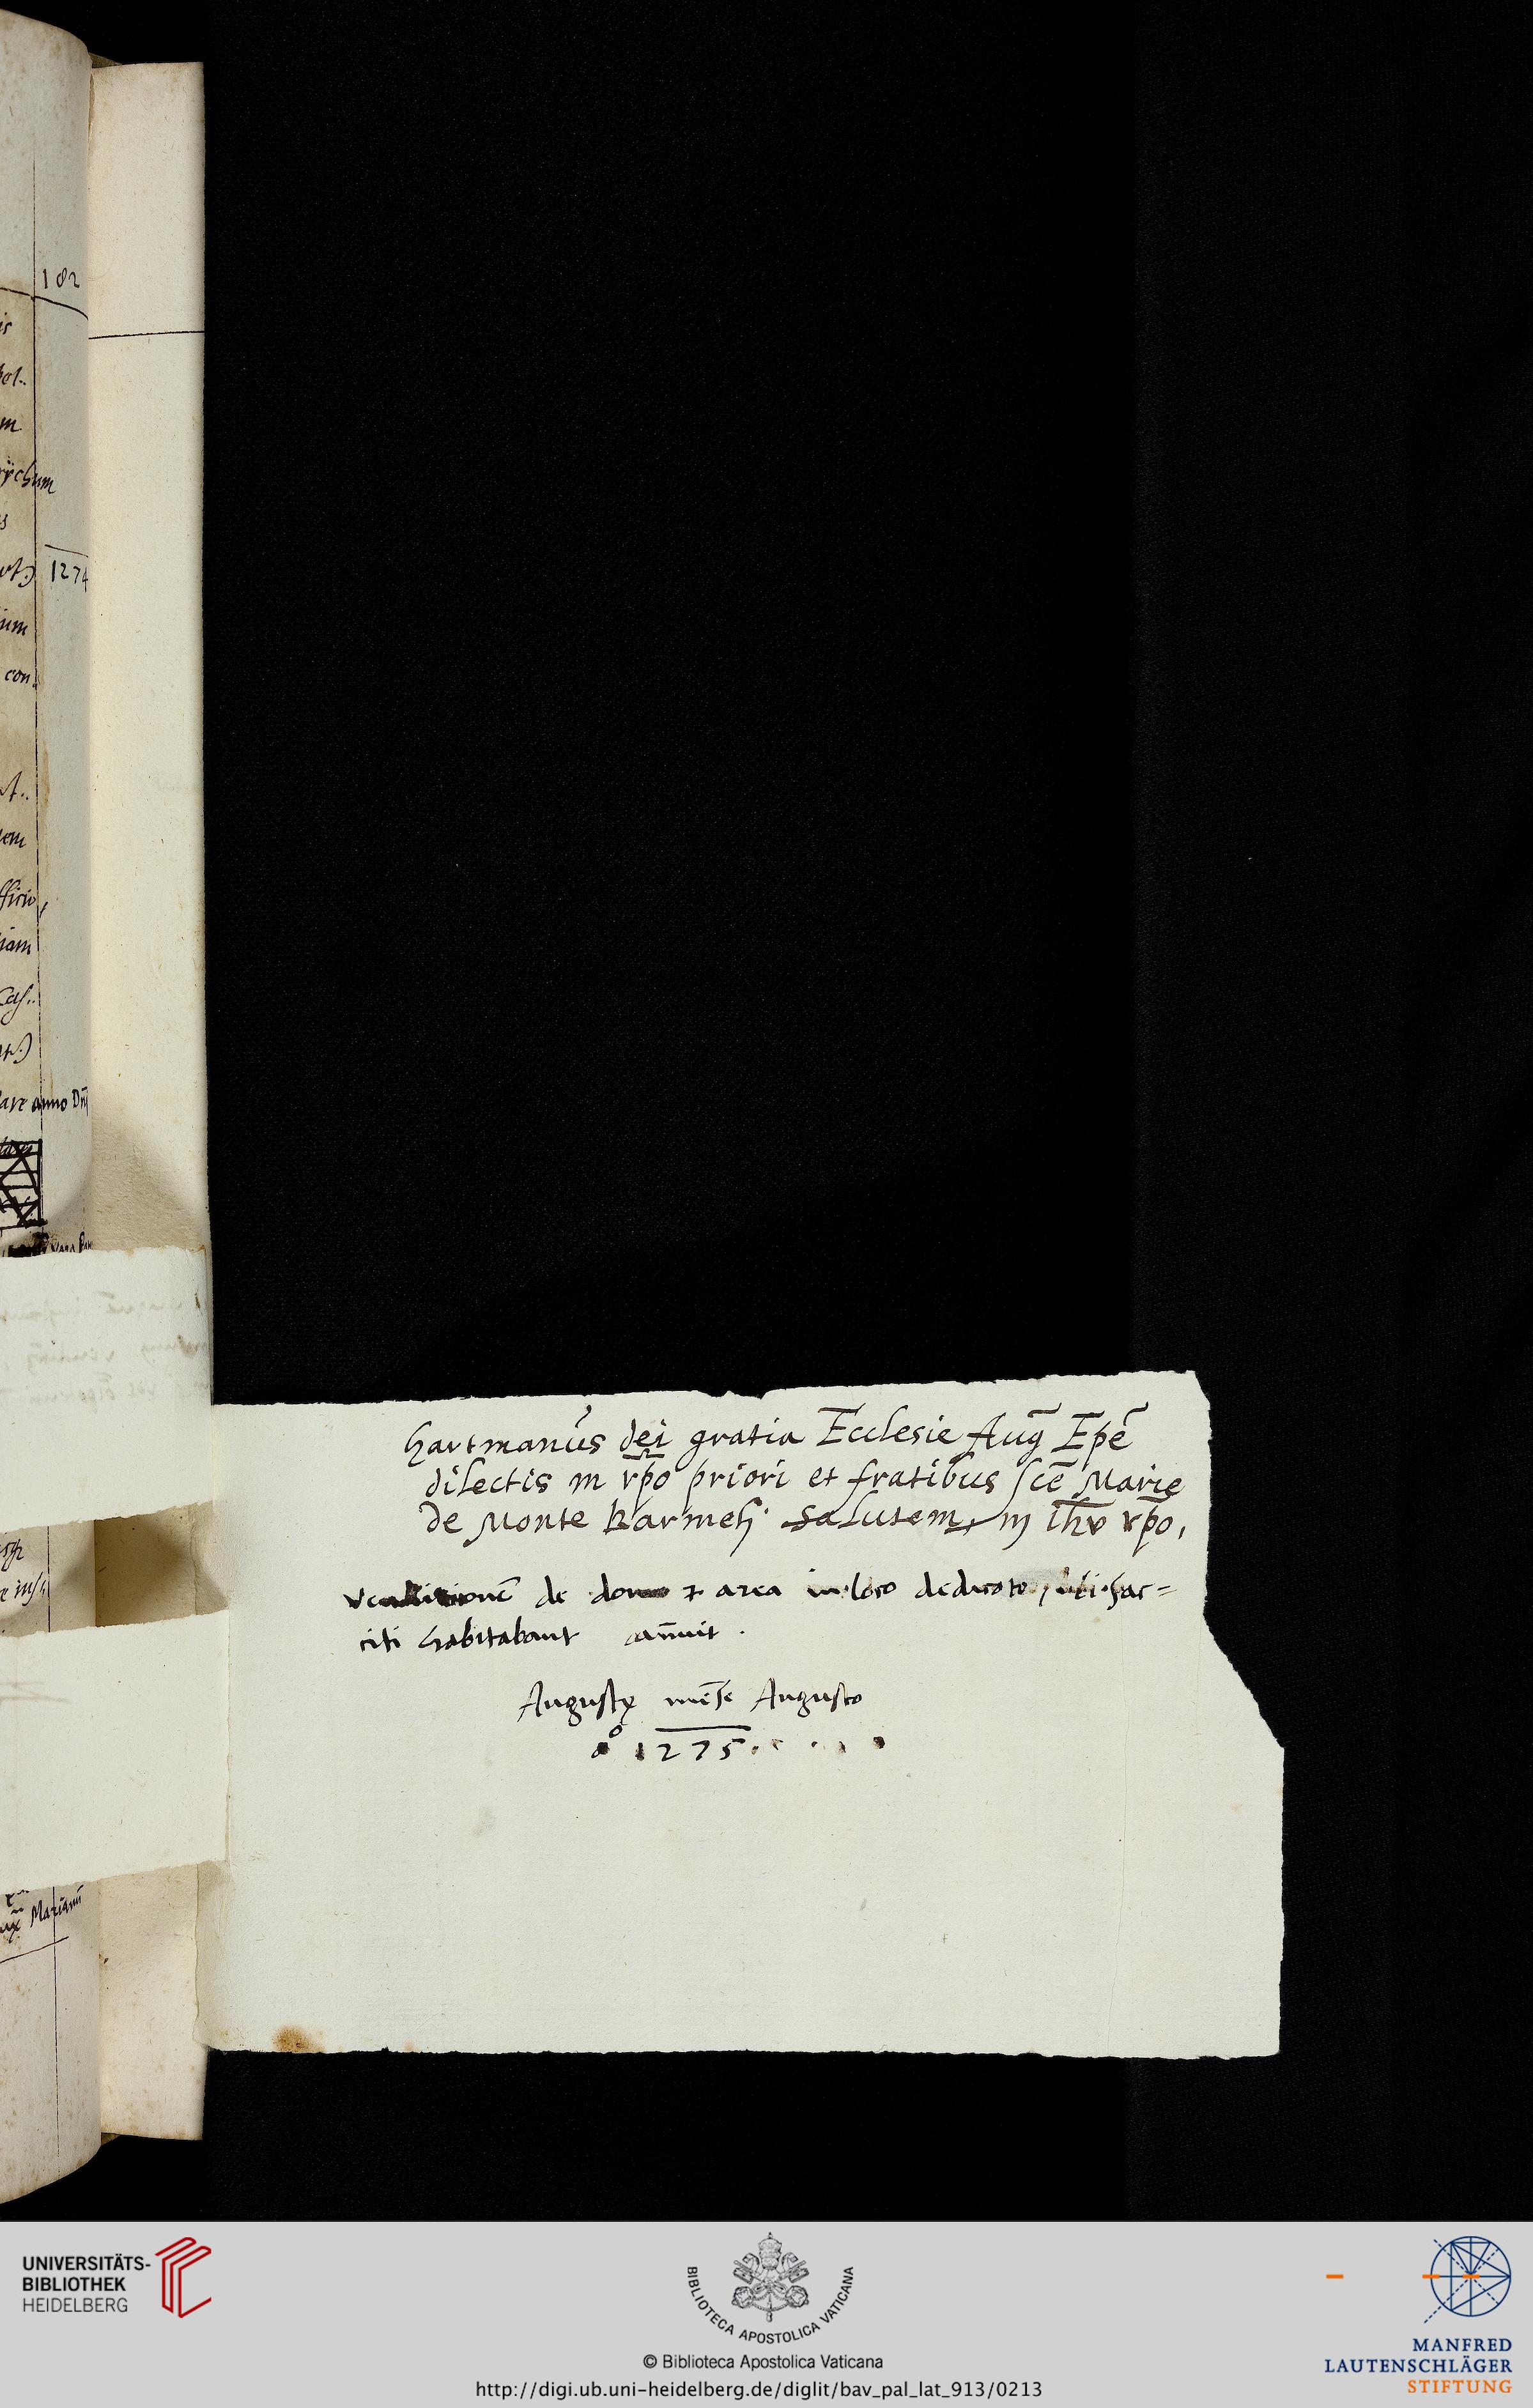 182
is
pol..
m
rÿchum
us
1274
ium
con..
at..
dem
fficio,
iam
Cas..
are anno Dnj
hartmanus dei gratia Ecclesie Aug̅ Epc̅
dilectis in xp̅o priori et fratibus sce̅ Marie
de Monte Karmeli. Salutem, in Ihv̅ xp̅o,
venditione̅ de domo et area in loco dedicato, ubi sac=
citi habitabant an̅uit.
Augustę me̅se Augusto
a° 1275.. . . .
Marianu̅
UNIVERSITÄTS-
BIBLIOTHEK
HEIDELBERG
BIBLIOTECA APOSTOLICA VATICANA
© Biblioteca Apostolica Vaticana
http://digi.ub.uni-heidelberg.de/diglit/bav_pal_lat_913/0213
MANFRED
LAUTENSCHLÄGER
STIFTUNG